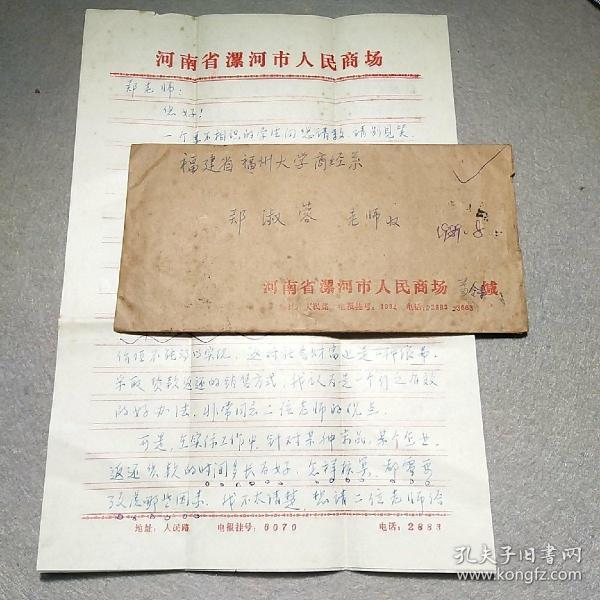 河南省漯河市人民商场
郑老师:
您好!
一个素不相识的学生向您请教,请别见笑.
福建省福州大学商经系
郑淑蓉 老师收
1989.8.
河南省漯河市人民商场 缄
地址:人民路 电报挂号: 电话:22883 23663
价值不能够实现,这对社会财富也是一种浪费.
采取货款返还的销售方式,我认为是一个行之有效
的好办法.非常同意二位老师的优点.
可是,在实际工作中,针对某种商品,某个企业,
返还货款的时间多长为好,怎样核算,都需要
考虑哪些因素,我不太清楚,想请二位老师给
地址:人民路 电报挂号:6070 电话:2883
孔夫子旧书网
www.kongfz.com